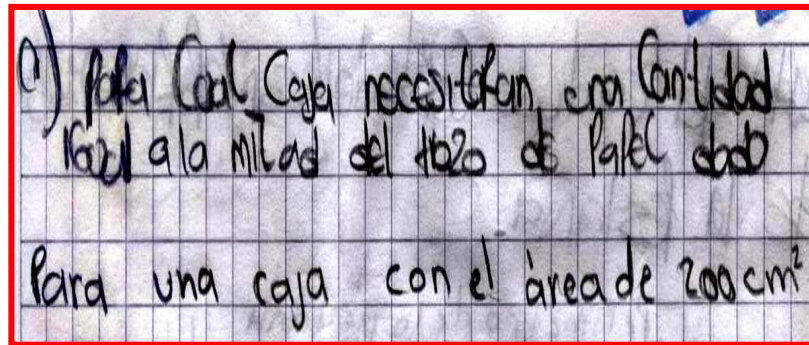 a) Para Cual Caja necesitaran una Cantidad
igual a la mitad del trozo de Papel dado
Para una caja con el área de 200 cm²